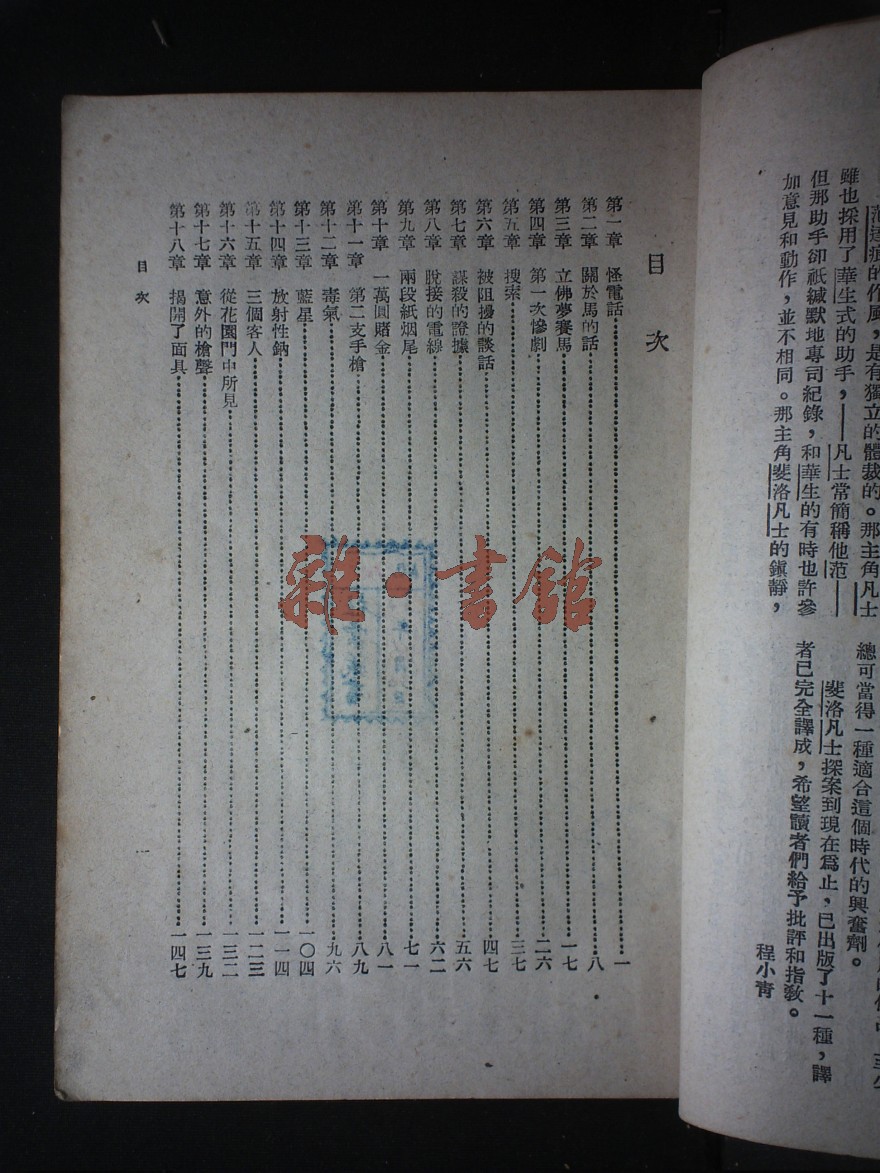 范達痕的作風，是有獨立的體裁的。那主角凡士
雖也採用了華生式的助手，——凡士常簡稱他范——
但那助手卻祇緘默地專司紀錄，和華生的有時也許參
加意見和動作，並不相同。那主角斐洛凡士的鎮靜，
總可當得一種適合這個時代的興奮劑。
斐洛凡士探案到現在為止，已出版了十一種，譯
者已完全譯成，希望讀者們給予批評和指教。
程小青
目次
第一章 怪電話⋯⋯一
第二章 關於馬的話⋯⋯八
第三章 立佛夢賽馬⋯⋯一七
第四章 第一次慘劇⋯⋯二六
第五章 搜索⋯⋯三七
第六章 被阻擾的談話⋯⋯四七
第七章 謀殺的證據⋯⋯五六
第八章 脫接的電線⋯⋯六二
第九章 兩段紙烟尾⋯⋯七一
第十章 一萬圓賭金⋯⋯八一
第十一章 第二支手槍⋯⋯八九
第十二章 毒氣⋯⋯九六
第十三章 藍星⋯⋯一〇四
第十四章 放射性鈉⋯⋯一一四
第十五章 三個客人⋯⋯一二三
第十六章 從花園門中所見⋯⋯一三二
第十七章 意外的槍聲⋯⋯一三九
第十八章 揭開了面具⋯⋯一四七
目次
一
雜·書館